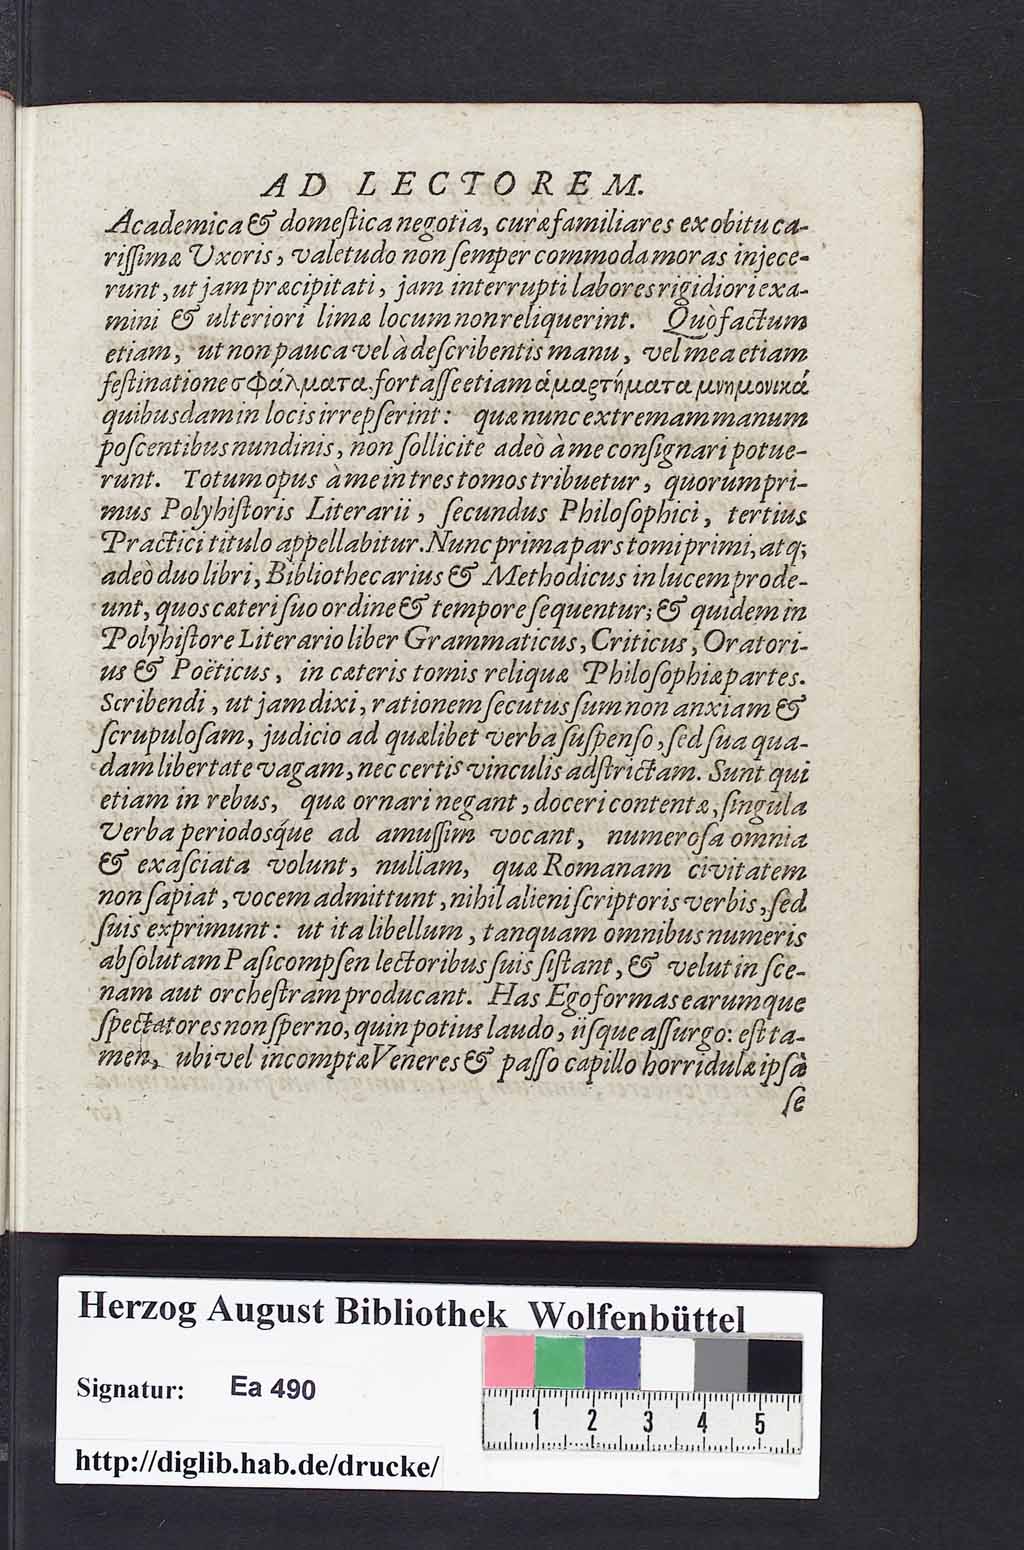 AD LECTOREM.
Academica & domeſtica negotia, curæ familiares ex obitu ca-
riſſimæ Uxoris, valetudo non ſemper commoda moras injece-
runt, ut jam præcipitati, jam interrupti labores rigidiori exa-
mini & ulteriori limæ locum non reliquerint. Quò factum
etiam, ut non pauca vel à deſcribentis manu, vel mea etiam
feſtinatione σφάλματα, fortaſſe etiam ἁμαρτήματα μνημονικά
quibusdam in locis irrepſerint: quæ nunc extremam manum
poſcentibus nundinis, non ſollicite adeò à me conſignari potue-
runt. Totum opus à me in tres tomos tribuetur, quorum pri-
mus Polyhiſtoris Literarii, ſecundus Philoſophici, tertius
Practici titulo appellabitur. Nunc prima pars tomi primi, atq;
adeò duo libri, Bibliothecarius & Methodicus in lucem prode-
unt, quos cæteri ſuo ordine & tempore ſequentur; & quidem in
Polyhiſtore Literario liber Grammaticus, Criticus, Oratori-
us & Poëticus, in cæteris tomis reliquæ Philoſophiæ partes.
Scribendi, ut jam dixi, rationem ſecutus ſum non anxiam &
ſcrupuloſam, judicio ad quælibet verba ſuſpenſo, ſed ſua qua-
dam libertate vagam, nec certis vinculis adſtrictam. Sunt qui
etiam in rebus, quæ ornari negant, doceri contentæ, ſingula
verba periodosq́ue ad amuſſim vocant, numeroſa omnia
& exaſciata volunt, nullam, quæ Romanam civitatem
non ſapiat, vocem admittunt, nihil alieni ſcriptoris verbis, ſed
ſuis exprimunt: ut ita libellum, tanquam omnibus numeris
abſolutam Paſicompſen lectoribus ſuis ſiſtant, & velut in ſce-
nam aut orcheſtram producant. Has Ego formas earumque
ſpectatores non ſperno, quin potius laudo, iiſque aſſurgo: eſt ta-
men, ubi vel incomptæ Veneres & paſſo capillo horridulæ ipſâ
ſe
Herzog August Bibliothek Wolfenbüttel
Signatur: Ea 490
1 2 3 4 5
http://diglib.hab.de/drucke/